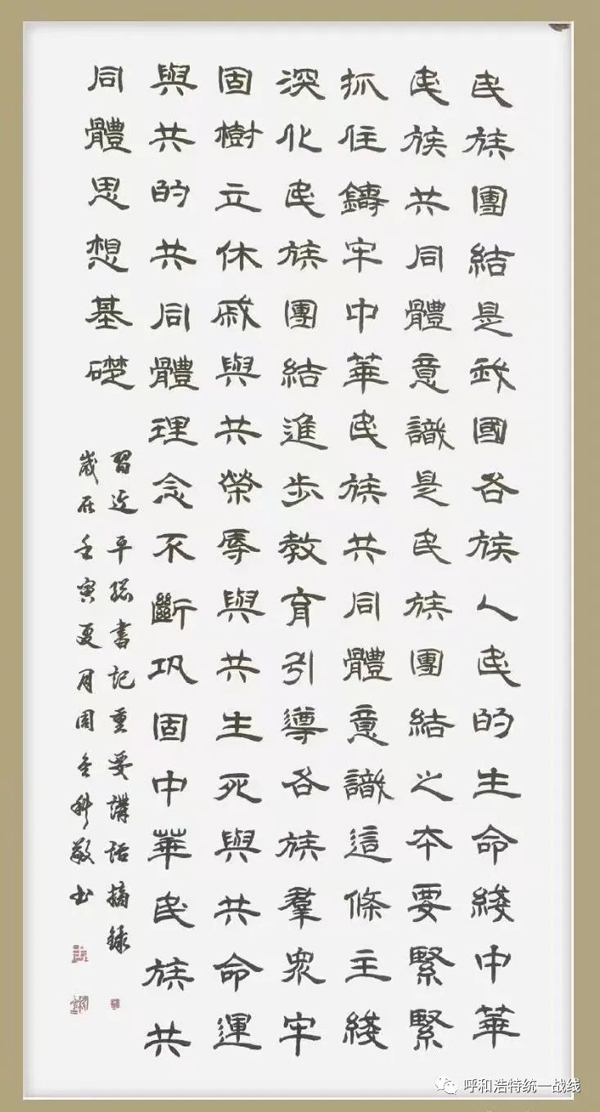 民族團結是我國各族人民的生命綫中華
民族共同體意識是民族團結之本要緊緊
抓住鑄牢中華民族共同體意識這條主綫
深化民族團結進步教育引導各族羣眾牢
固樹立休戚與共榮辱與共生死與共命運
與共的共同體理念不斷巩固中華民族共
同體思想基礎
習近平總書記重要講話摘錄
歲在壬寅夏月周金科敬書
呼和浩特统一战线